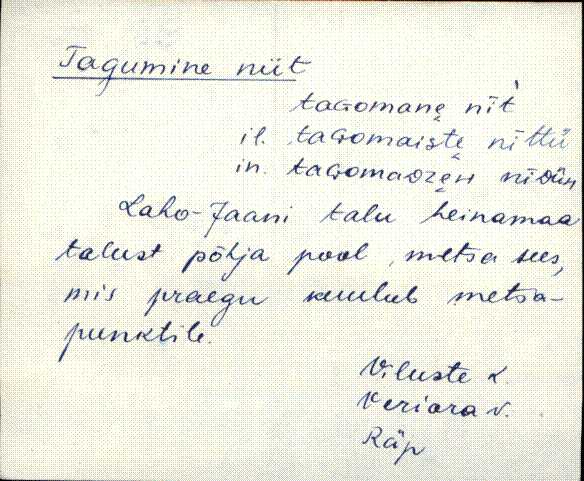 Tagumine niit
taGomane̮ nīt̀
il. taGomaiste̮ nīttü
in. taGomaDze̮n nīDün
Laho-Jaani talu heinamaa
talust põhja pool, metsa sees,
mis praegu kuulub metsa-
punktile.
Viluste k.
Veriora v.
Räp